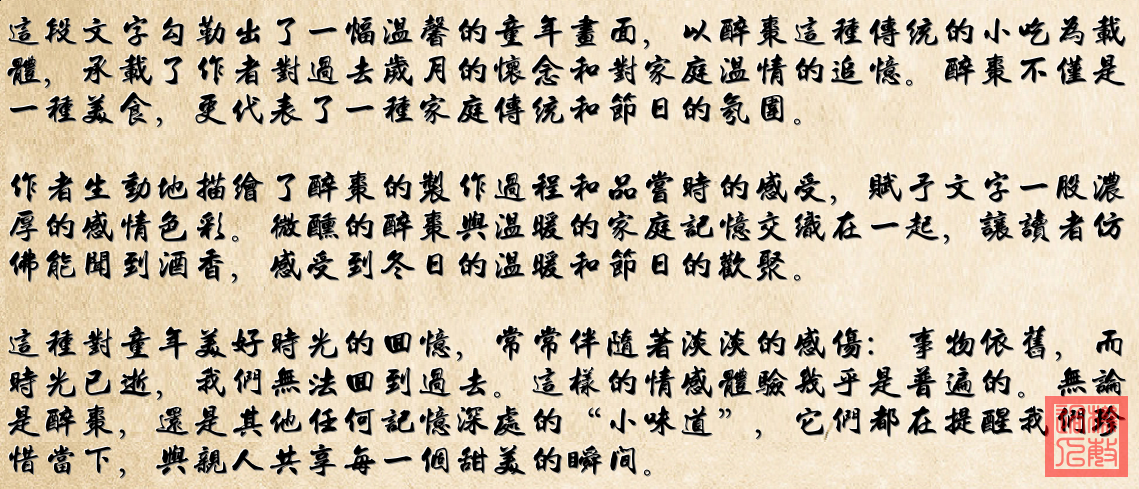 這段文字勾勒出了一幅溫馨的童年畫面，以醉棗這種傳統的小吃為載
體，承載了作者對過去歲月的懷念和對家庭溫情的追憶。醉棗不僅是
一種美食，更代表了一種家庭傳統和節日的氛圍。
作者生動地描繪了醉棗的製作過程和品嘗時的感受，賦予文字一股濃
厚的感情色彩。微醺的醉棗與溫暖的家庭記憶交織在一起，讓讀者仿
佛能聞到酒香，感受到冬日的溫暖和節日的歡聚。
這種對童年美好時光的回憶，常常伴隨著淡淡的感傷：事物依舊，而
時光已逝，我們無法回到過去。這樣的情感體驗幾乎是普遍的。無論
是醉棗，還是其他任何記憶深處的“小味道”，它們都在提醒我們珍
惜當下，與親人共享每一個甜美的瞬间。